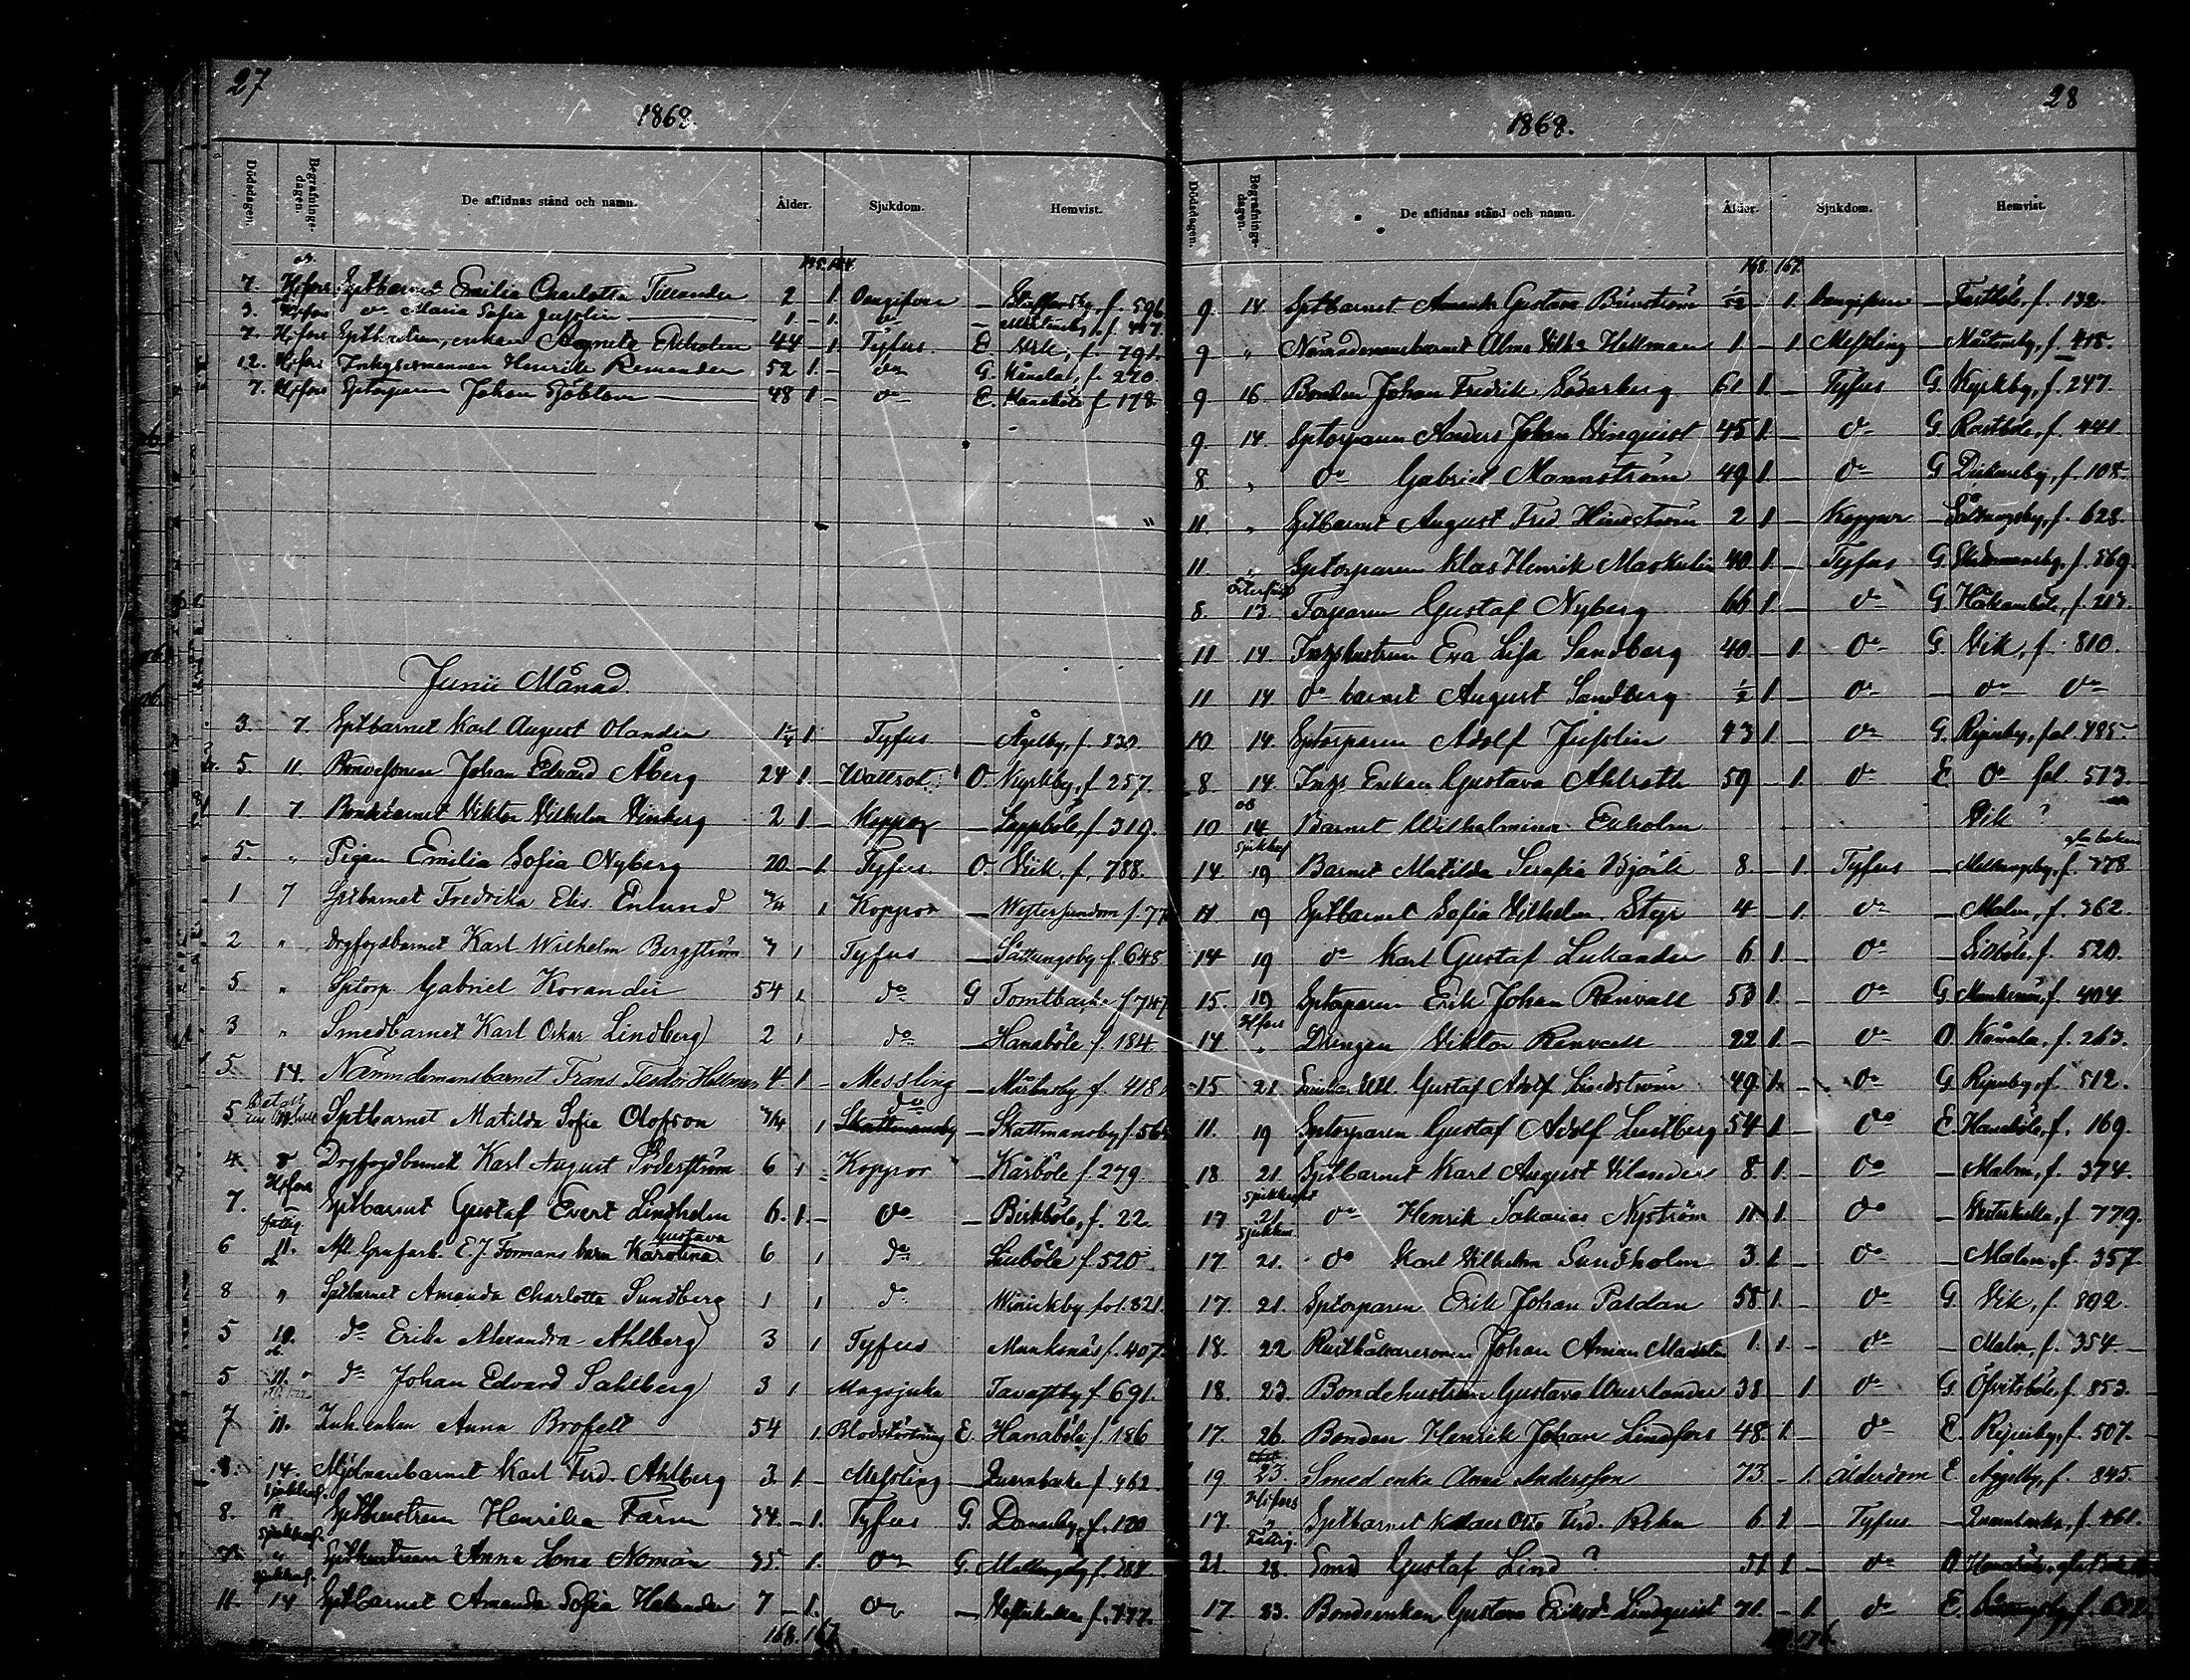 27
1868.
Dödsdagen. Begrafningsdagen. De aflidnas stånd och namn. Ålder. Sjukdom. Hemvist.
7. H:fors Sptbarnet Emilia Charlotta Tillander 2 - 1. - f. 596
3. H:fors do Maria Sofia Jusolin 1 - 1. do - Mårtensby, f. 417.
7. H:fors enkan Agneta Ekholm 44 - 1 Tyfus. E. f. 791.
12. H:fors Henrik Remander 52 1. - do G. Kånala, f. 270.
7. H:fors Sptorparen Johan Sjöblom 48 1 - do E. Hanaböle f. 178.
Junii Månad.
3. 7. Sptbarnet Karl August Olander 1 1/4 1. Tyfus - Ågelby, f. 830.
5. 11. Bondesonen Johan Edvard Åberg 24 1. - Wattsot. O. Kyrkby, f. 257.
1. 7. Bondebarnet Viktor Vilhelm Vinberg 2 1 - Koppor - Lappböle, f. 319.
5. " Pigan Emilia Sofia Nyberg 20. - 1. Tyfus. O. Vik. f. 788.
1 7 Sptbarnet Fredrika Elis. Enlund 1 Koppor - Westersundom f. 77
2 " Drgfogdbarnet Karl Wilhelm Bergström 1 Tyfus - Sottungsby f. 648
5 " Sptorp. Gabriel Korander 54 1. do G Tomtbacka f. 747
3 " Smedbarnet Karl Oskar Lindberg 2 1 do - Hanaböle f. 184.
5 14. Nämndemansbarnet Frans Teodor Hellman 4 1 - Messling - Mårtensby f. 418
5 Sptbarnet Matilda Sofia Olofson 3/4 1 do Skattmansby - Skattmansby f. 565
4. 8 Drgfogdbarnet Karl August Söderström 6 1 - Koppor - Kårböle f. 279.
7. H:fors Sptbarnet Gustaf Evert Lindholm 6. 1. - do - Biskböle, f. 22.
fattig. Gustava
6 11. Afl. Grufarb. E. J. Formans barn Karolina 6 1 do f. 520
8 " Sptbarnet Amanda Charlotta Sundberg 1 1 do Winickby fol. 821.
5 10. do Erika Alexandra Ahlberg 3 1 Tyfus Munksnäs f. 407.
5 11. do Johan Edvard Sahlberg 3 1 Magsjuka Tavastby f. 691.
7 11. Inh. enkan Anna Brofelt 54 1. Blodstörtning E. Hanaböle f. 186
8. 14. Mjölnarebarnet Karl Ferd. Ahlberg 3 1. - Messling - Qvarnbacka f. 462.
sjukhus.
8. 11 Spthustrun Henrika Färm 34. - 1. Tyfus G. f. 100
sjukhus.
" Spthustrun Anna Lena Nomán 35. 1. do G. Mellungsby f. 287.
sjukhus.
11. 14 Sptbarnet Amanda Sofia Helander 7 - 1. do - Westerkulla f. 777.
168. 167.
28
1868.
Dödsdagen. Begrafningsdagen. De aflidnas stånd och namn. Ålder. Sjukdom. Hemvist.
168. 167.
9. 14. Sptbarnet Amanda Gustava - 1. - Fastböle, f. 132.
9 " Nämndemansbarnet Alma Vilh:a Hellman 1 - 1 Messling - Mårtensby, f. 418.
9 16. Bonden Johan Fredrik Söderberg 61 1. - Tyfus G. Kyrkby, f. 247.
9. 14. Sptorparen Anders Johan Vinquist 45 1. - do G. f. 441.
8 " do Gabriel Mannström 49 1. - do G Dickursby, f. 108.
11. " Sptbarnet August Fred. Hindström 2 1 - Koppor - Sottungsby, f. 628.
11. " Sptorparen Klas Henrik Maskulin 40. 1. - Tyfus G. Skattmansby, f. 569.
8. 13. Torparen Gustaf Nyberg 66 1. - do G. Håkansböle, f. 213.
11 14. Inhyshustrun Eva Lisa Sandberg 40. - 1. do G. Vik, f. 810.
11 14. do barnet August Sandberg 1/2 1. - do - do do
10 14. Sptorparen Adolf Jusolin 43 1. - do G. Ripuby, fol. 485
8. 14. Inhys Enkan Gustava Ahlroth 59 - 1. do E do fol 513.
10 14 Barnet Wilhelmina Ekholm Vik ?
sjukhus
14. 19 Barnet Matilda Serafia Björk 8. - 1. Tyfus - Mellungsby, f. 778.
11 19 Sptbarnet Sofia Vilhelm. 4 - 1. do - Malm, f. 362.
14 19 do Karl Gustaf Lukander 6 1. - do - f. 520.
15. 19 Sptorparen Erik Johan Renvall 53 1. - do G Munksnäs, f. 404.
H:fors
14 " Drengen Viktor Renvall 22 1. - do O Kånala, f. 263.
15 21. Gustaf Adolf Lindström 49. 1. - do G Ripuby, f. 512.
11. 19 Sptorparen Gustaf Adolf Lindberg 54 1 - do E. Hanaböle, f. 169.
18 21. Sptbarnet Karl August Vilander 8. 1. - do - Malm, f. 374.
sjukhuset
17 21. do Henrik Sakarias Nyström 11. 1. do - Westerkulla, f. 779.
sjukhus.
17 21. do Karl Vilhelm Sundholm 3. 1. - do - Malm, f. 357.
17. 21. Sptorparen Erik Johan Paldan 58 1. - do G. Vik, f. 802.
18. 22 Rusthållaresonen Johan Arvian 1. 1. - do - Malm, f. 354.
18. 23. Bondehustrun Gustava 38 - 1. do G. f. 853.
17. 26. Bonden Henrik Johan Lindfors 48. 1. - do E. Ripuby, f. 507.
19 23. Smed enka Anna Andersson 73 - 1. Ålderdom E. Åggelby, f. 845.
H:fors
17. " Sptbarnet Klaes Otto Ferd. Rehn 6 1. - Tyfus - Qvarnbacka, f. 461.
Fattig.
21. 28. Smed Gustaf Lind ? 51 1. - do O
17. 23. Bondeenkan Gustava Eriksd. Lindquist 71. - 1. do E. Sottungsby, f. 622.